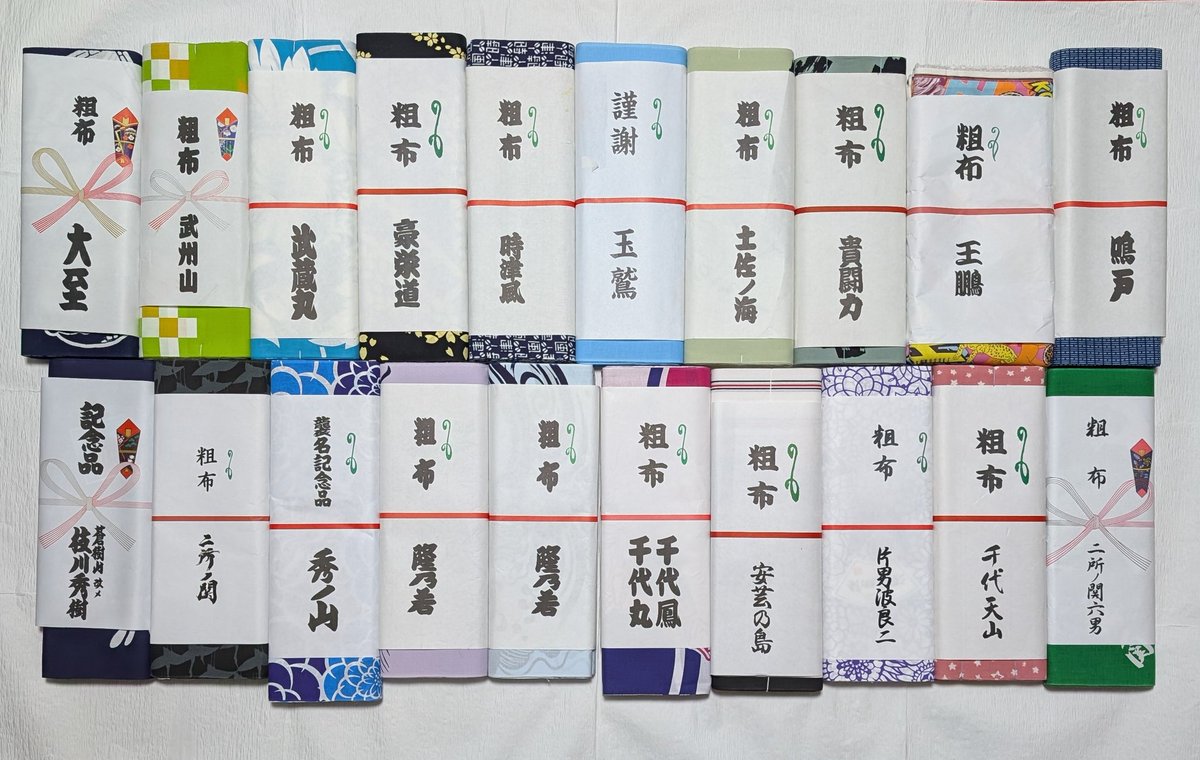 粗布
大至
粗布
武州山
粗布
武蔵丸
粗布
豪栄道
粗布
時津風
謹謝
玉鷲
粗布
土佐ノ海
粗布
貴闘力
粗布
王鵬
粗布
鳴戸
記念品
蒼樹山 改メ
枝川秀樹
粗布
二所ノ関
襲名記念品
秀ノ山
粗布
隆乃若
粗布
隆乃若
粗布
千代鳳
千代丸
粗布
安芸の島
粗布
片男波良二
粗布
千代天山
粗布
二所ノ関六男